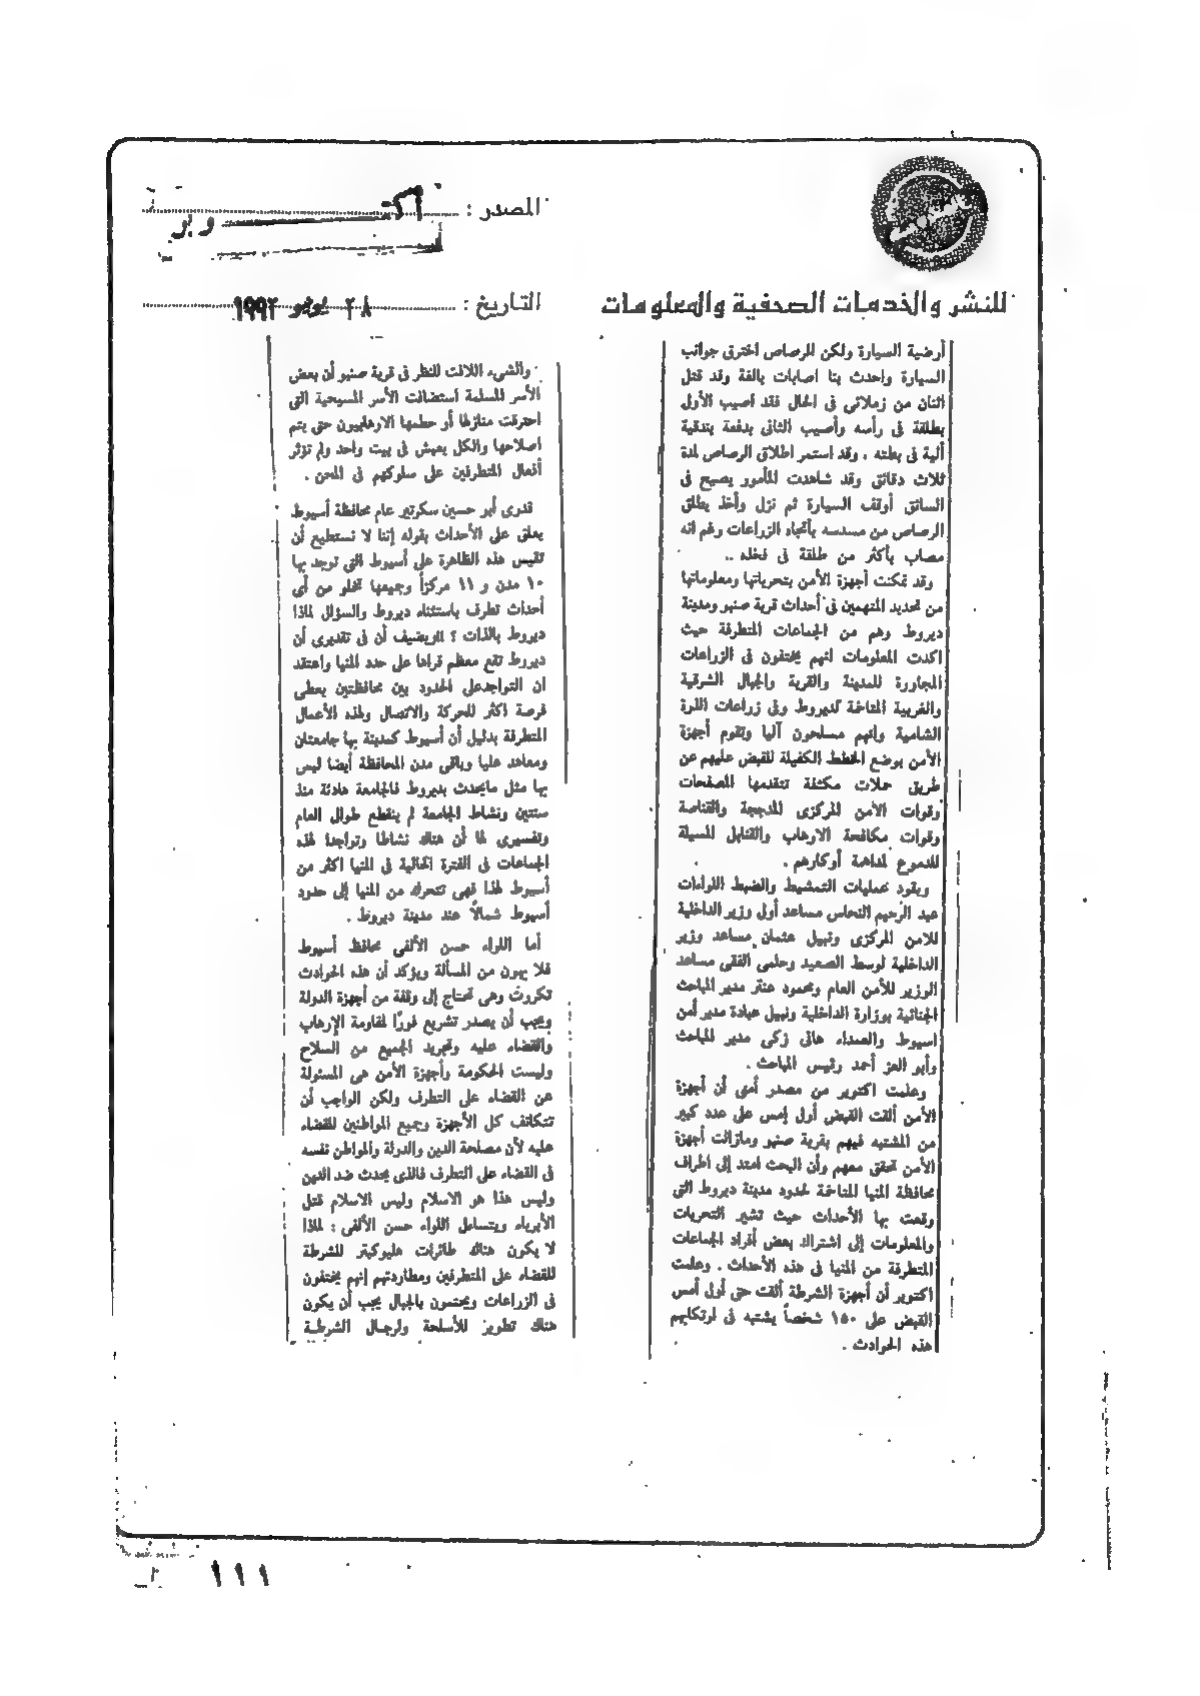 المصدر : أكتوبر
التاريخ : ٢٨ يونيو ١٩٩٢
للنشر والخدمات الصحفية والمعلومات
أرضية السيارة ولكن الرصاص اخترق جوانب
السيارة واحدث بنا اصابات بالغة وقد قتل
اثنان من زملائي فى الحال فقد اصيب الأول
بطلقة فى رأسه وأصيب الثانى بدفعة بندقية
آلية فى بطنه . وقد استمر اطلاق الرصاص لمدة
ثلاث دقائق وقد شاهدت المأمور يصيح فى
السائق أوقف السيارة ثم نزل وأخذ يطلق
الرصاص من مسدسه بأتجاه الزراعات رغم انه
مصاب بأكثر من طلقة فى فخذه ..
وقد تمكنت أجهزة الأمن بتحرياتها ومعلوماتها
من تحديد المتهمين فى أحداث قرية صنبو ومدينة
ديروط وهم من الجماعات المتطرفة حيث
اكدت المعلومات انهم يختفون فى الزراعات
المجاورة للمدينة والقرية والجبال الشرقية
والغربية المتاخمة لديروط وفى زراعات الذرة
الشامية وانهم مسلحون آليا وتقوم أجهزة
الأمن بوضع الخطط الكفيلة للقبض عليهم عن
طريق حملات مكثفة تتقدمها المصفحات
وقوات الأمن المركزى المدججة والقناصة
وقوات مكافحة الارهاب والقنابل المسيلة
للدموع لمداهمة أوكارهم .
ويقود عمليات التمشيط والضبط اللواءات
عبد الرحيم النحاس مساعد أول وزير الداخلية
للامن المركزى ونبيل عثمان مساعد وزير
الداخلية لوسط الصعيد وحلمى الفقى مساعد
الوزير للأمن العام ومحمود عنتر مدير المباحث
الجنائية بوزارة الداخلية ونبيل عبادة مدير أمن
اسيوط والعمداء هانى زكى مدير المباحث
وأبو العز أحمد رئيس المباحث .
وعلمت اكتوبر من مصدر أمنى أن أجهزة
الأمن ألقت القبض أول إمس على عدد كبير
من المشتبه فيهم بقرية صنبو ومازالت أجهزة
الأمن تحقق معهم وأن البحث امتد إلى اطراف
محافظة المنيا المتاخمة لحدود مدينة ديروط التى
وقعت بها الأحداث حيث تشير التحريات
والمعلومات إلى اشتراك بعض أفراد الجماعات
المتطرفة من المنيا فى هذه الأحداث . وعلمت
اكتوبر أن أجهزة الشرطة ألقت حتى أول أمس
القبض على ١٥٠ شخصاً يشتبه فى ارتكابهم
هذه الحوادث .
والشىء اللافت للنظر فى قرية صنبو أن بعض
الأسر المسلمة استضافت الأسر المسيحية التى
احترقت منازلها أو حطمها الارهابيون حتى يتم
اصلاحها والكل يعيش فى بيت واحد ولم تؤثر
أفعال المتطرفين على سلوكهم فى المحن .
قدرى أبو حسين سكرتير عام محافظة أسيوط
يعلق على الأحداث بقوله إننا لا نستطيع أن
نقيس هذه الظاهرة على أسيوط التى توجد بها
١٠ مدن و ١١ مركزاً وجميعها تخلو من أى
أحداث تطرف باستثناء ديروط والسؤال لماذا
ديروط بالذات ؟ !! ويضيف أن فى تقديرى أن
ديروط تقع معظم قراها على حدد المنيا واعتقد
ان التواجدعلى الحدود بين محافظتين يعطى
فرصة اكثر للحركة والاتصال ولهذه الأعمال
المتطرفة بدليل أن أسيوط كمدينة بها جامعتان
ومعاهد عليا وباقى مدن المحافظة أيضا ليس
بها مثل مايحدث بديروط فالجامعة هادئة منذ
سنتين ونشاط الجامعة لم ينقطع طوال العام
وتفسيرى لها أن هناك نشاطا وتواجدا لهذه
الجماعات فى الفترة الحالية فى المنيا اكثر من
أسيوط لهذا فهى تتحرك من المنيا إلى حدود
أسيوط شمالاً عند مدينة ديروط .
أما اللواء حسن الألفى محافظ أسيوط
فلا يهون من المسألة ويؤكد أن هذه الحوادث
تكررت وهى تحتاج إلى وقفة من أجهزة الدولة
ويجب أن يصدر تشريع فورًا لمقاومة الإرهاب
والقضاء عليه وتجريد الجميع من السلاح
وليست الحكومة وأجهزة الأمن هى المسئولة
عن القضاء على التطرف ولكن الواجب أن
تتكاتف كل الأجهزة وجميع المواطنين للقضاء
عليه لأن مصلحة الدين والدولة والمواطن نفسه
فى القضاء على التطرف فالذى يحدث ضد الدين
وليس هذا هو الاسلام وليس الاسلام قتل
الأبرياء ويتساءل اللواء حسن الألفى : لماذا
لا يكون هناك طائرات هليوكبتر للشرطة
للقضاء على المتطرفين ومطاردتهم إنهم يختفون
فى الزراعات ويحتمون بالجبال يجب أن يكون
هناك تطوير للأسلحة ولرجال الشرطة
١١١